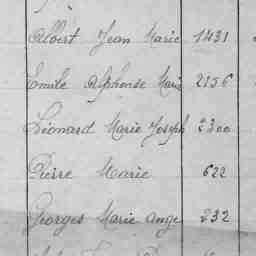 Albert Jean Marie 1431
Emile Alphonse Marie 2156
Léonard Marie Joseph 2300
Pierre Marie 622
Georges Marie Ange 232